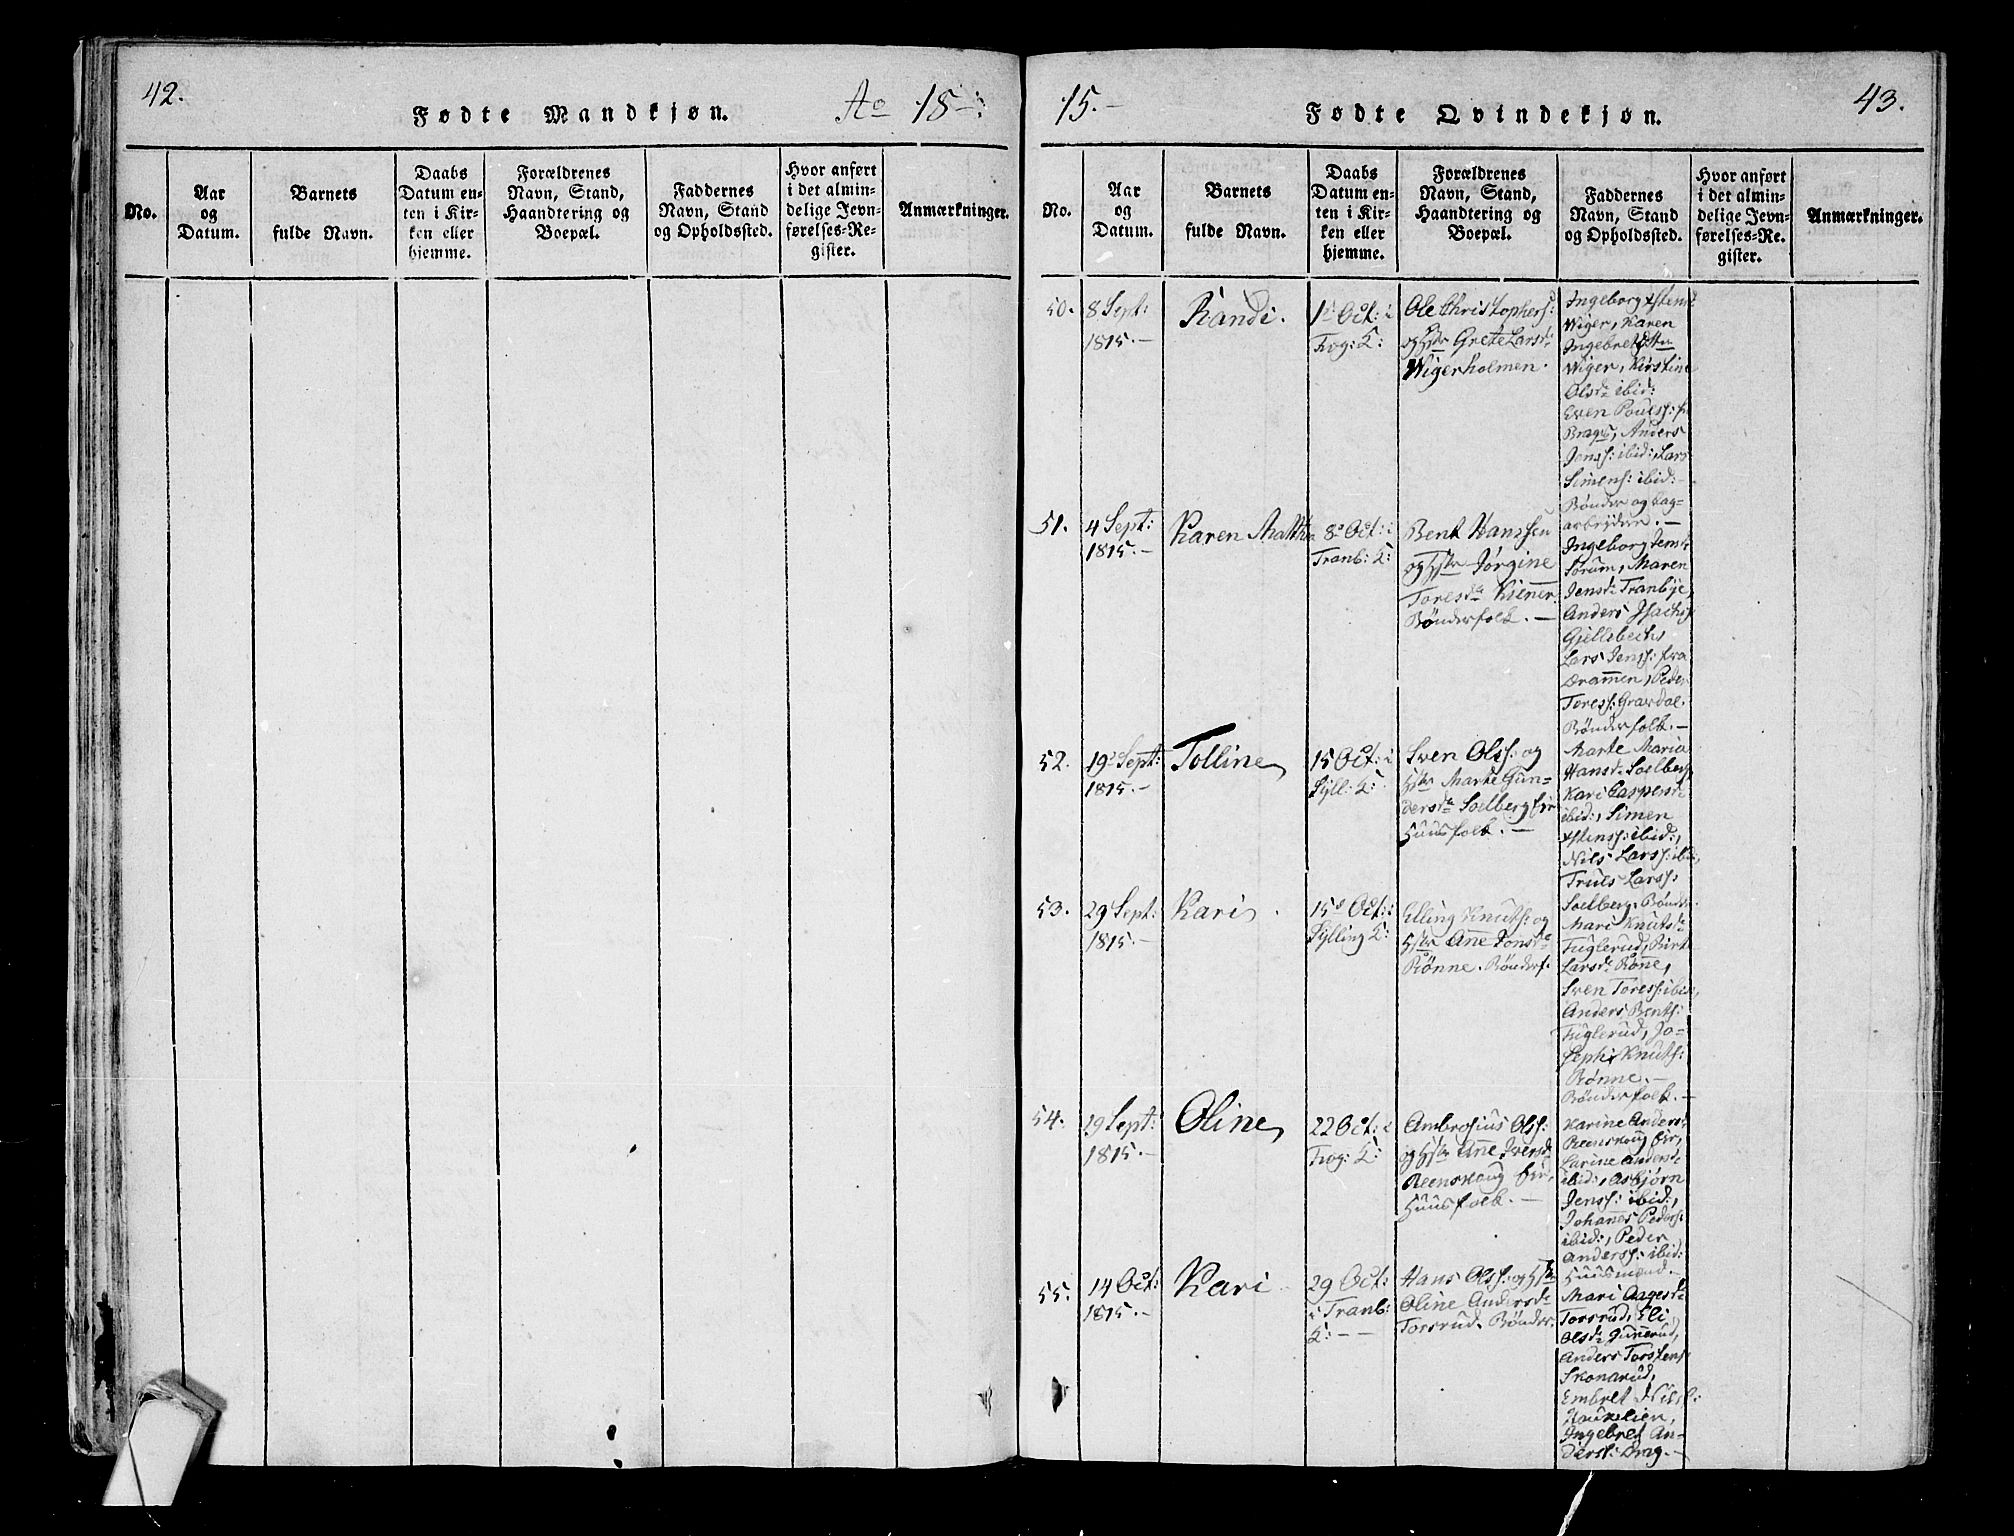 42.
Fødte Mandkjøn.
Ao 18-
No.
Aar
og
Datum.
Barnets
fulde Navn.
Daabs
Datum en-
ten i Kir-
ken eller
hjemme.
Forældrenes
Navn, Stand,
Haandtering og
Boepæl.
Faddernes
Navn, Stand
og Opholdssted.
Hvor anført
i det almin-
delige Jevn-
førelses-Re-
gister.
Anmærkninger.
15.-
Fødte Qvindekjøn.
43.
No.
Aar
og
Datum.
Barnets
fulde Navn.
Daabs
Datum en-
ten i Kir-
ken eller
hjemme.
Forældrenes
Navn, Stand,
Haandtering og
Boepæl.
Faddernes
Navn, Stand
og Opholdssted.
Hvor anført
i det almin-
delige Jevn-
førelses-Re-
gister.
Anmærkninger.
50.
8 Sept:
1815.-
Randi.
1s Oct: i
Frog: K:
Ole Christophers:
og Hstr Grete Larsd:
Wigerholmen.
Ingeborg
Wiger, Karen
Wiger, Kirstine
Olsd: ibid:
Even Pouls: fr
Brag, Anders
Jens: ibid:, Lars
Simens: ibid:-
Bønder og
arbejdere.-
51.
4 Sept:
1815.-
Karen Matthea
8 Oct: i
Tranb: K:
Bent Hanssen
og Hstr Jørgine
Toresda Kiener.
Bønderfolk.-
Ingeborg Jensd:
Sørum, Maren
Jensd: Tranbye,
Anders Isachs:
Gjellebech,
Lars Jens: fra
Dram̅en, Peder
Toress: Gravdal.
Bønderfolk.-
52.
19 Sept:
1815.-
Tolline
15 Oct: i
Sÿll: K:
Sven Olss: og
Hstr Marte Gun-
dersda Solberg eje
Huusfolk.-
Marte Maria
Hansd: Solberg
Kari Caspersd:
ibid:, Simen
Østens: ibid:,
Nils Lars: ibid,
Truls Larss:
Solberg. Bønder.
53.
29 Sept:
1815.-
Kari
15 Oct: i
Sÿlling K:
Elling Knuts: og
Hstr An̅e Jonsda
Rønne. Bønderf.
Mari Knutsd:
Fuglerud, Birte
Larsd: Røn̅e,
Sven Toress: ibid,
Anders Bents:
Fuglerud, Jo-
seph Knuts:
Rønne.-
Bønderfolk.-
54.
19 Sept:
1815.-
Oline
22 Oct: i
Frog: K:
Ambrosius Olss:
og Hstr An̅e Iversd:
Reenskoug eje,
Huusfolk.-
Karine Andersd:
Reenskoug eje,
Larine Andersd:
ibid:, Asbjørn
Jenss: ibid:,
Johan̅es Peders:
ibid:, Peder
Anderss: ibid:
Huusmænd.-
55.
14 Oct:
1815.-
Kari
29 Oct:
i Tranb:
K:--
Hans Olss: og Hstr
Oline Andersda
Torsrud. Bønder.
Mari Aagesd:
Torsrud, Eli
Olsd: Gun̅erud,
Anders Torstens:
Skonarud,
Embret Nilss:
Haukelien,
Ingebret An-
derss: Drag.-